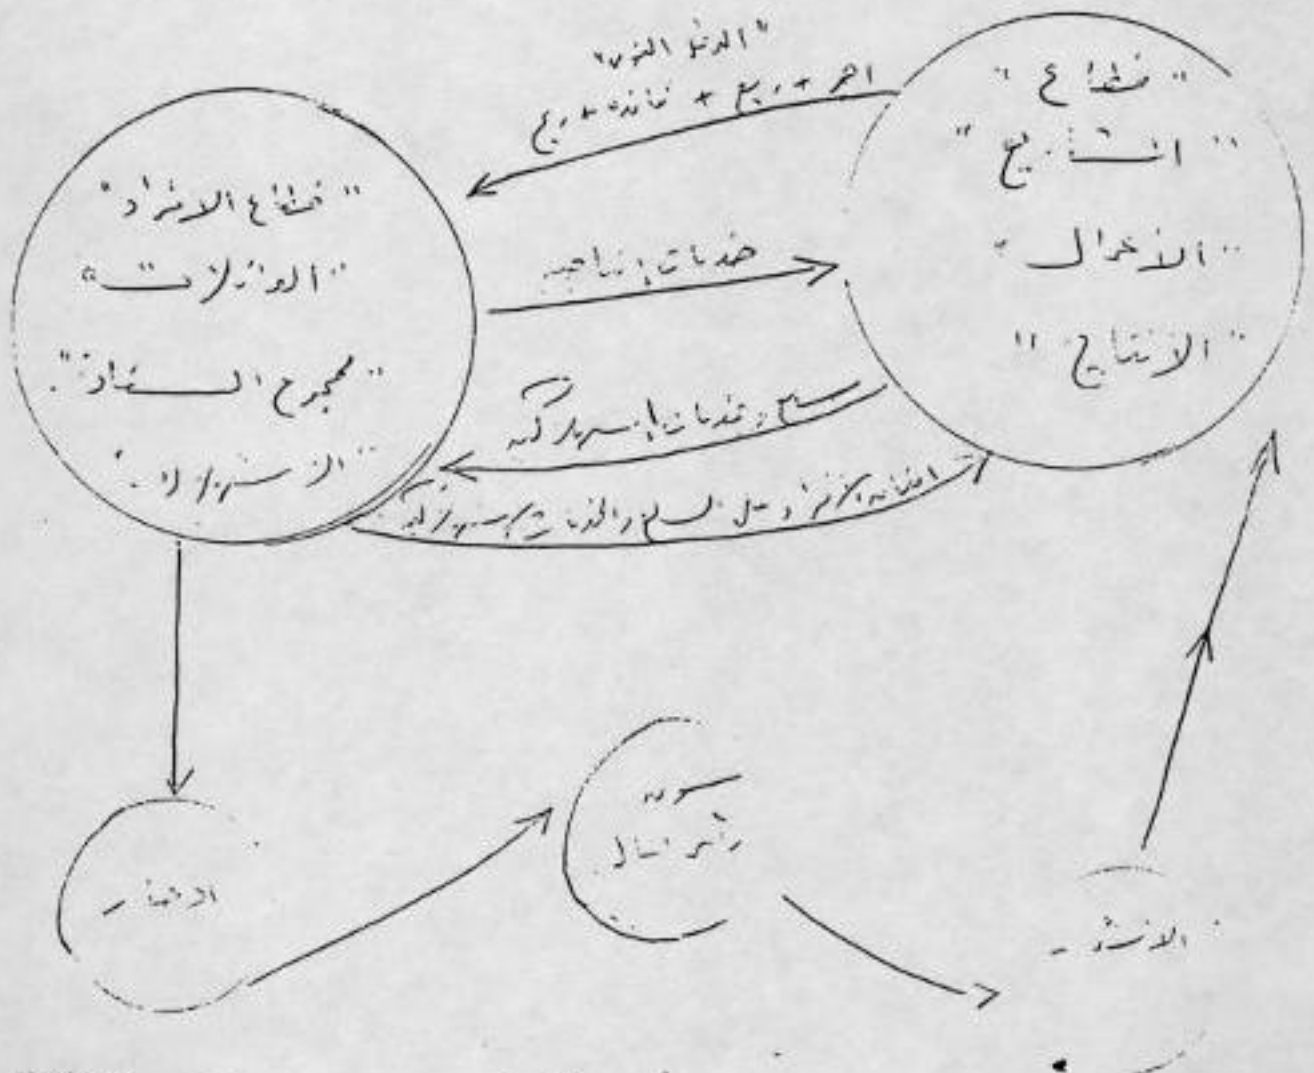 "الدخل القومي"
اجر + ربع + فائدة + ربح
"قطاع"
"المشاريع"
"الاعمال"
"الانتاج"
"قطاع الافراد"
"العائلات"
"مجموع
"الاستهلاك"
خدمات إنتاجية
سلع وخدمات إستهلاكية
الافراد على السلع والخدمات الاستهلاكية
الادخار
سوق
رأس المال
الاستثمار